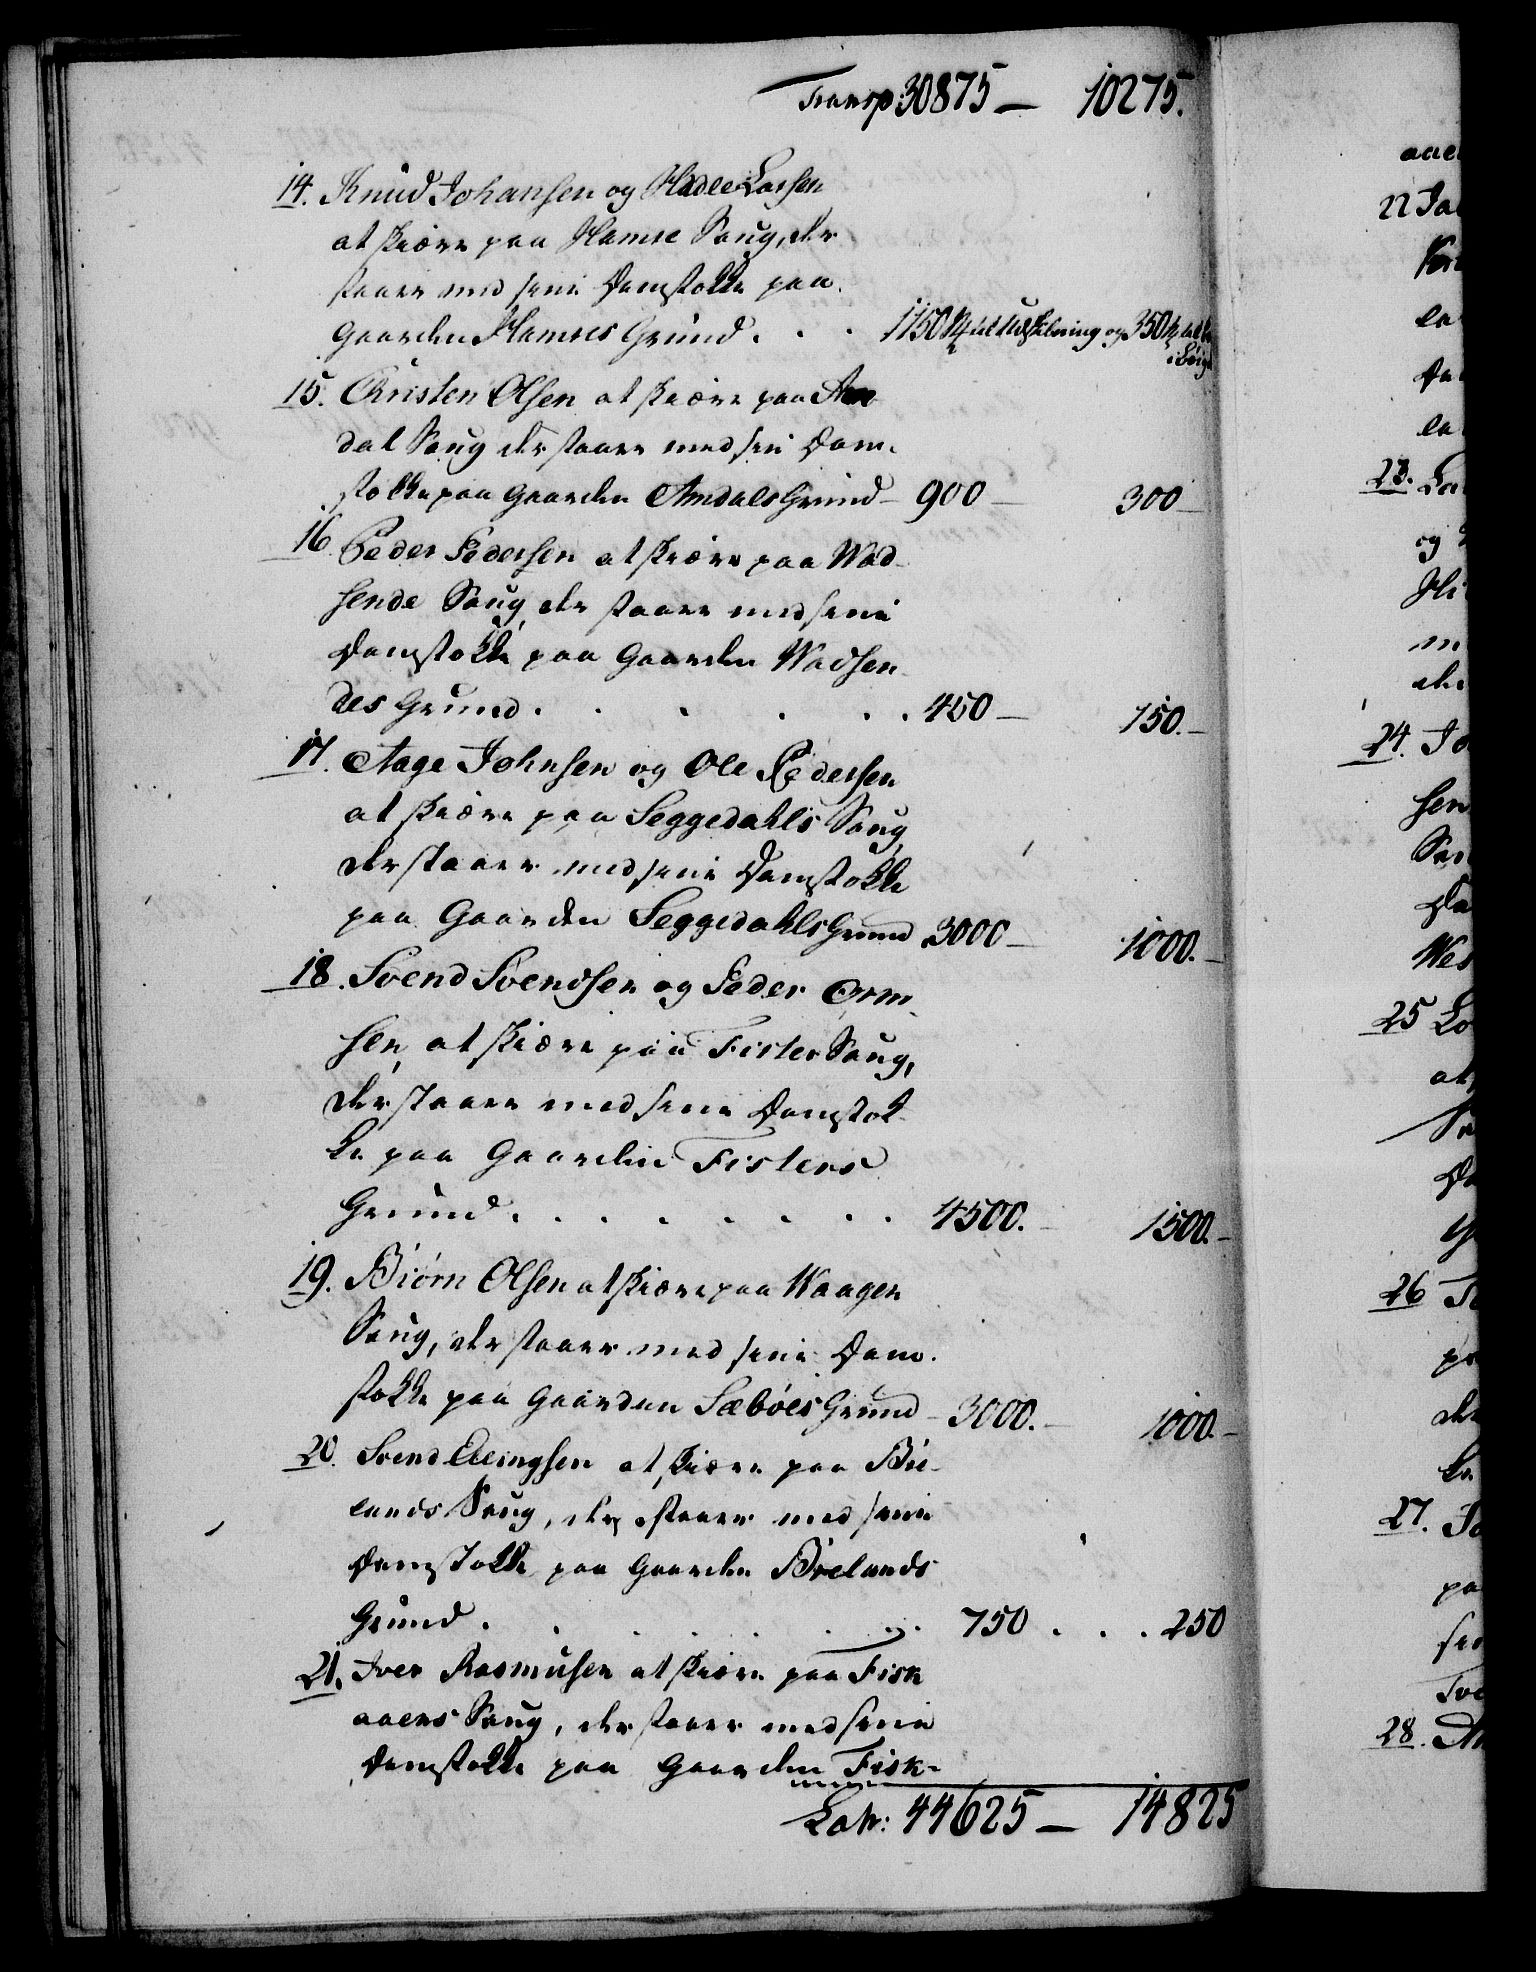 Transp 30875 — 10275.
14. Knud Johansen og Hadle Larsen
at skiære paa Hamre Saug, der
staaer med sine Damstokke paa
Gaarden Hamres Grund . . 1150 til Udskibning og 350
15. Christen Olsen at skiære paa Am
dal Saug der staaer med sin Dam-
stokke paa Gaarden Amdals Grund — 900 — 300 —
16 Peder Pedersen at skiære paa Wad-
sende Saug, der staaer med sine
Damstokke paa Gaarden Wadsen-
des Grund . . . . . 450 — 150. —
17. Aage Johnsen og Ole Pedersen
at skiære paa Seggedahls Saug,
der staaer med sine Damstokke
paa Gaarden Seggedahls Grund 3000 — 1000. —
18. Svend Svendsen og Peder Orm-
sen, at skiære paa Fister Saug,
der staaer med sine Damstok-
ke paa Gaarden Fisters
Grund . . . . . . . 4500. — 1500. —
19. Biørn Olsen at skiære paa Waagen
Saug, der staaer med sine Dam-
stokke paa Gaarden Sæbøes Grund — 3000. — 1000. —
20. Svend at skiære paa Bie-
lands Saug, der staaer med sine
Damstokke paa Gaarden Bielands
Grund . . . . . 750 . . . 250
21. Iver Rasmusen at skiære paa Fisk
aaens Saug, der staaer med sine
Damstokke paa Gaarden Fisk-
Latr: 44625 — 14825
22
og
23.
24.
sen
25
at
26
27.
28.